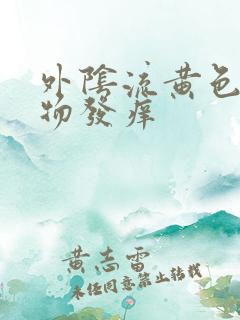 外陰流黄色
物發痒
黄志雷
未经同意禁止转载